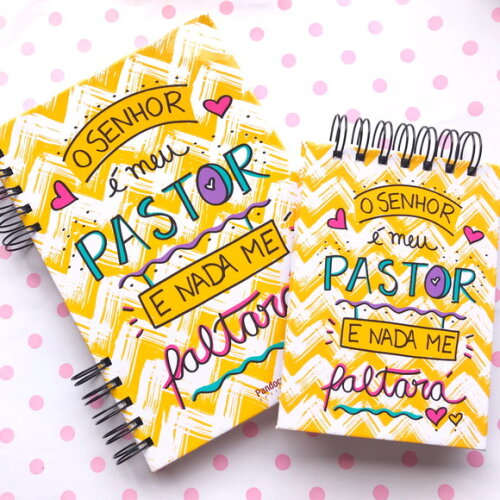 O SENHOR
é meu
PASTOR
E NADA ME
faltará
O SENHOR
é meu
PASTOR
E NADA ME
faltará